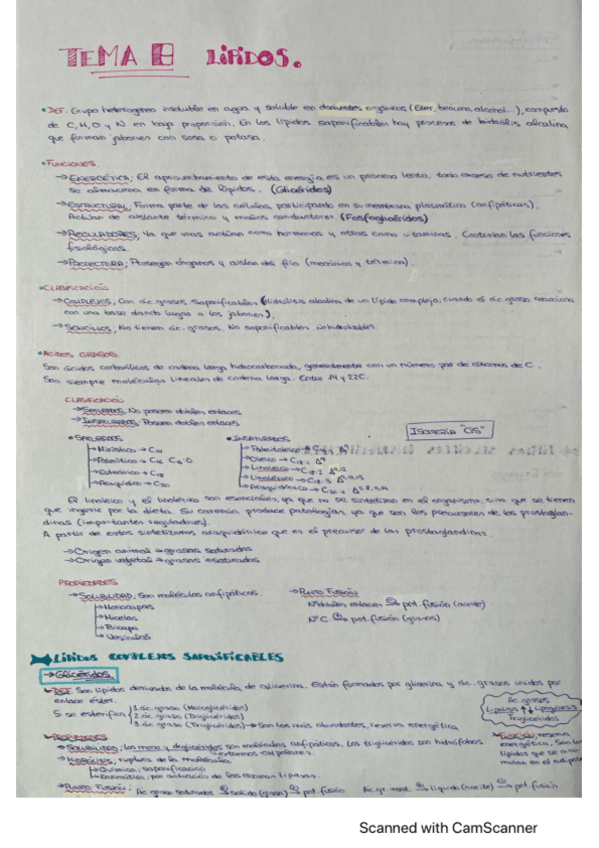 TEMA 8 LÍPIDOS.
• DEF. Grupo heterogeneo insoluble en agua y soluble en disolventes orgánicos (Éter, benceno, alcohol...), compuesto
de C, H, O y N en baja proporción. En los lípidos saponificables hay procesos de hidrólisis alcalina,
que forman jabones con sosa o potasa.
• FUNCIONES.
→ ENERGÉTICA; El aprovechamiento de esta energía es un proceso lento, todo exceso de nutrientes
se almacena en forma de lípidos. (Glicéridos)
→ ESTRUCTURAL. Forma parte de las células, participando en su membrana plasmática (anfipáticas).
Actúan de aislante térmico y malos conductores. (Fosfoglicéridos)
→ REGULADORES; Ya que unas actúan como hormonas y otras como vitaminas. Controlan las funciones
fisiológicas.
→ PROTECTORA; Protegen órganos y aislan del frío (mecánica y térmica).
• CLASIFICACIÓN
→ COMPLEJOS; Con ác. grasos. Saponificables (Hidrólisis alcalina de un lípido complejo, cuando el ác. graso reacciona
con una base dando lugar a los jabones).
→ SENCILLOS; No tienen ác. grasos. No saponificables
• ÁCIDOS GRASOS
Son ácidos carboxílicos de cadena larga hidrocarbonada, generalmente con un número par de átomos de C.
Son siempre moléculas lineales de cadena larga. Entre 14 y 22C.
CLASIFICACIÓN
→ SATURADOS; No poseen dobles enlaces
→ INSATURADOS; Poseen dobles enlaces
• SATURADOS • INSATURADOS ISOMERÍA "CIS"
→ Mirístico → C14 → Palmitoleico
→ Palmítico → C16 → Oleico → C18:1 Δ9
→ Esteárico → C18 → Linoleico → C18:2 Δ9,12
→ Araquídico → C20 → Linolénico → C18:3
→ Araquidónico → C20:4
El linoleico y el linolénico son esenciales, ya que no se sintetizan en el organismo, sino que se tienen
que ingerir por la dieta. Su carencia produce patologías ya que son los precursores de las prostaglan-
dinas (importantes reguladores).
A partir de estos sintetizamos araquidónico que es el precursor de las prostaglandinas.
→ Origen animal → grasas saturadas
→ Origen vegetal → grasas
PROPIEDADES
→ SOLUBILIDAD; Son moléculas anfipáticas. → PUNTO FUSIÓN
→ Monocapas Nº dobles enlaces pnt. fusión (aceite)
→ Micelas Nº C pnt. fusión (grasas)
→ Bicapa
→ Vesículas
LÍPIDOS COMPLEJOS SAPONIFICABLES
→ GLICÉRIDOS
DEF. Son lípidos derivados de la molécula de glicerina. Están formados por glicerina y ác. grasos unidos por
enlace éster.
Ác. grasos
Lipólisis Lipogénesis
Triglicéridos
Si se esterifica 1 ác. graso (Monoglicéridos)
2 ác. graso (Diglicéridos)
3 ác. graso (Triglicéridos) → Son los más abundantes, reserva energética
PROPIEDADES
→ SOLUBILIDAD; Los mono y diglicéridos son moléculas anfipáticas. Los triglicéridos son hidrófobos
→ HIDRÓLISIS; ruptura de la molécula
→ Química; saponificación
→ Enzimática; por actuación de las enzimas lipasas.
FUNCIÓN; reserva
energética. Son los
lípidos que se acu-
mulan en el adipos
→ PUNTO FUSIÓN; Ác. graso saturados sólido (grasa) pnt. fusión líquido (aceite) pnt. fusión
Scanned with CamScanner